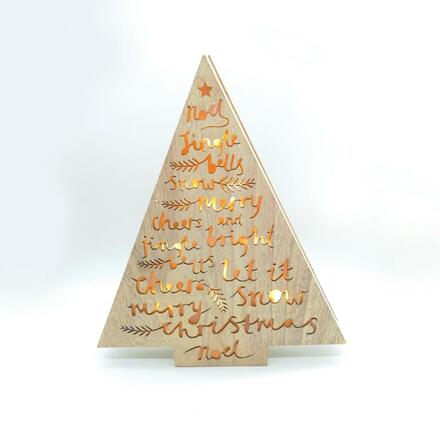 Noel
Jingle
bells
Snow
Merry
Cheers and
jingle bright
bells let it
Cheers Snow
merry
christmas
Noel